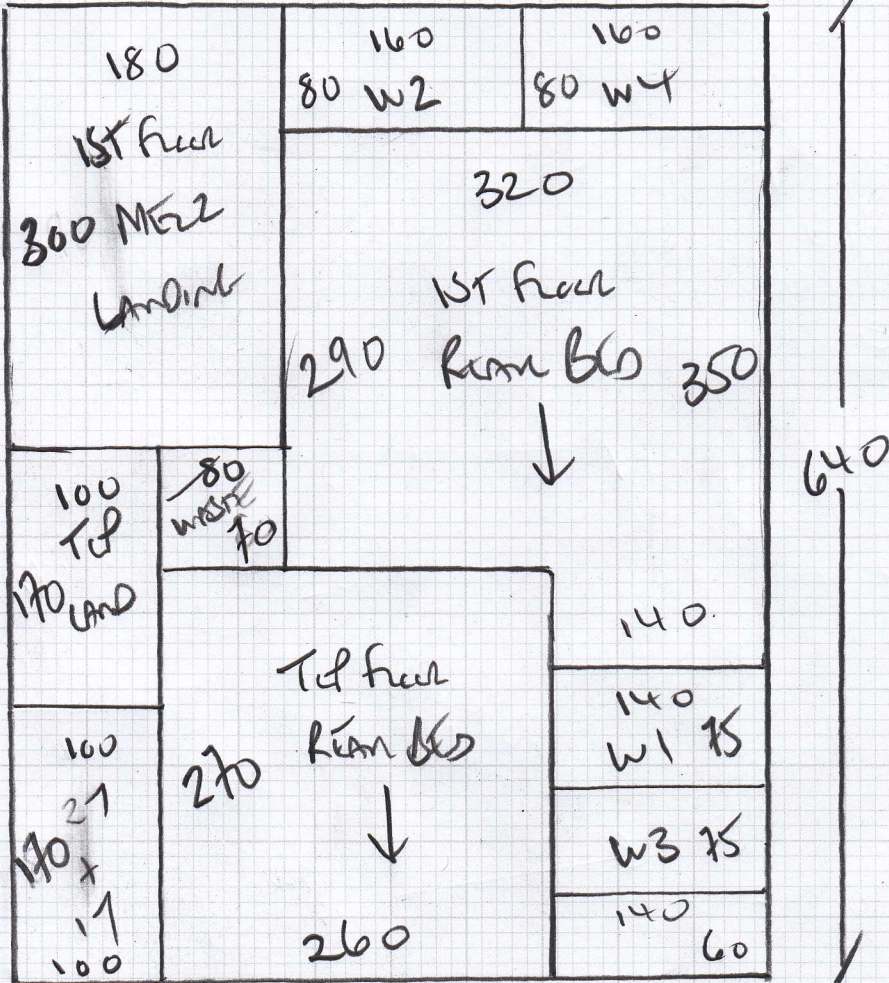 180
1ST Floor
300 MEZZ
LANDING
160
80 W2
160
80 W4
320
1ST Floor
290 REAR BED 350
640
100
TOP
170 LAND
80
WASTE
70
140
TOP Floor
270 REAR BED
260
140
W1 75
W3 75
140
60
100
21
170 x
17
100